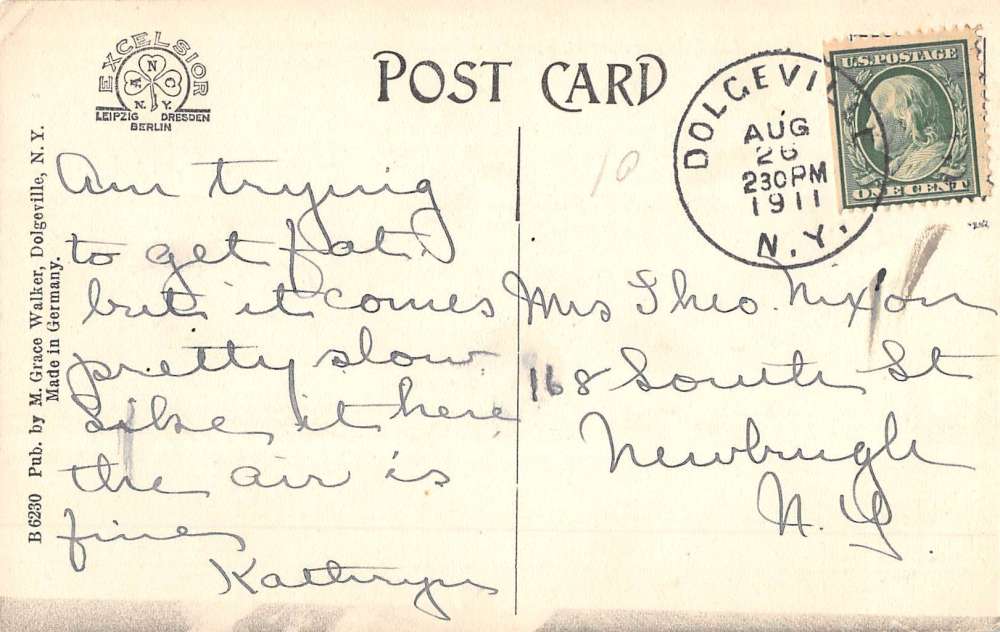 EXCELSIOR
A N C
N. Y.
LEIPZIG DRESDEN
BERLIN
POST CARD
DOLGEVIL
AUG
26
230PM
1911
N.Y.
U.S. POSTAGE
ONE CENT
10
B 6230 Pub. by M. Grace Walker, Dolgeville, N. Y.
Made in Germany.
Am trying
to get fat.
but it comes
pretty slow
Like it here
the air is
fine
Kathryn
Mrs Theo. Nixon
168 South St
Newbrugh
N. Y